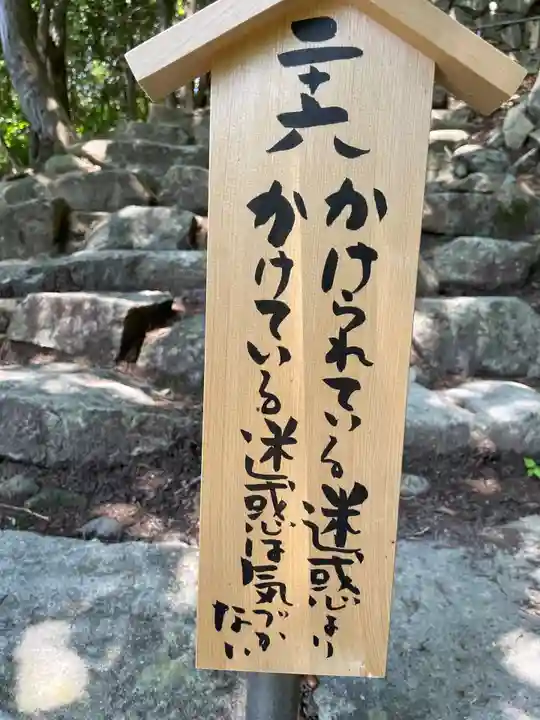 二十六
かけられている迷惑より
かけている迷惑は気づかない